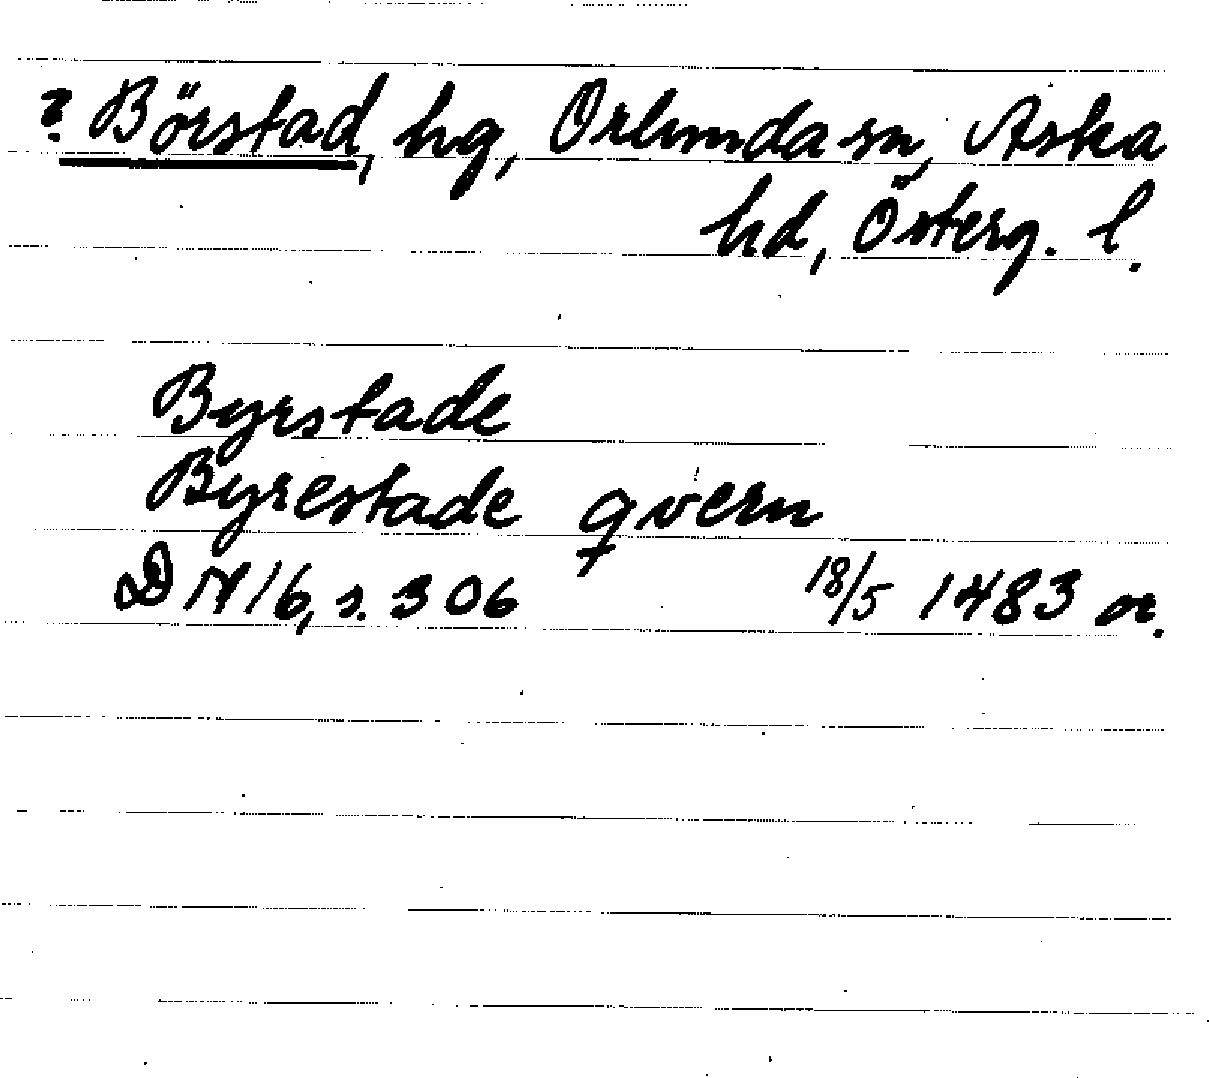 ? Börstad, hg, Orlunda sn, Aska
hd, Österg. l.
Byrstade
Byrestade qvern
DN 16, s. 306 18/5 1483 or.